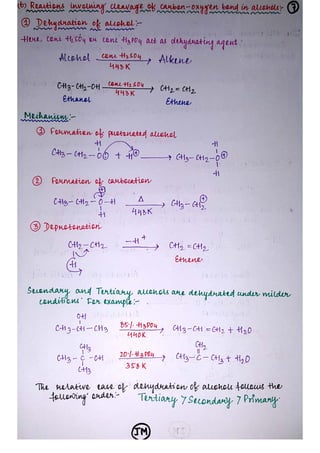 (b) Reactions involving cleavage of carbon-oxygen bond in alcohols:- 7
① Dehydration of alcohol:-
-Here, conc H2SO4 or conc H3PO4 act as dehydrating agent.
Alcohol conc H2SO4 → Alkene
443K
CH3-CH2-OH conc H2SO4 → CH2=CH2
443K
Ethanol Ethene
Mechanism:-
① Formation of protonated alcohol
H H
CH3-CH2-O + H⊕ → CH3-CH2-O⊕
H
② Formation of carbocation
⊕
CH3-CH2-O-H Δ → CH3-CH2
H 443K
③ Deprotonation
CH2-CH2 -H+ → CH2=CH2
H Ethene
Secondary and Tertiary alcohols are dehydrated under milder
conditions. For example:-
OH
CH3-CH-CH3 85% H3PO4 → CH3-CH=CH2 + H2O
440K
CH3 CH2
CH3-C-OH 20% H3PO4 → CH3-C-CH3 + H2O
CH3 358K
The relative ease of dehydration of alcohols follows the
following order:- Tertiary > Secondary > Primary
JM